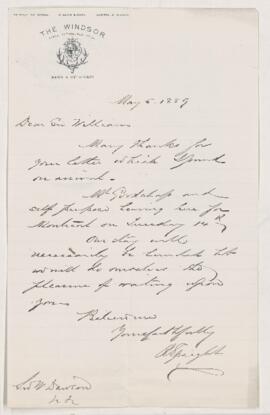 THE WINDSOR
May 5. 1889
Dear Sir William
Many thanks for
your letter which I found
on arrival.
Mr and
self purpose leaving here for
Montreal on Tuesday 14th
Our stay will
necessarily be limited but
we will do ourselves the
pleasure of waiting upon
you.
Believe me
Yours faithfully
Sir W Dawson